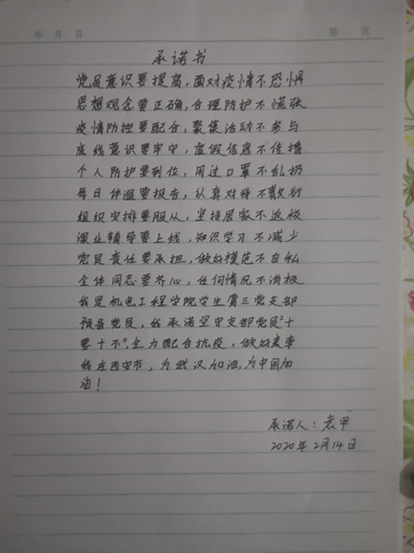 年 月 日
第 页
承诺书
党员意识要提高,面对疫情不恐惧
思想观念要正确,合理防护不慌张
疫情防控要配合,聚集活动不参与
底线意识要牢守,虚假信息不传播
个人防护要到位,用过口罩不乱扔
每日体温要报告,认真对待不敷衍
组织安排要服从,坚持居家不返校
课业辅导要上线,知识学习不减少
党员责任要承担,做好模范不自私
全体同志要齐心,任何情况不消极
我是机电工程学院学生第三党支部
预备党员,我承诺坚守支部党员"十
要十不",全力配合抗疫,做好表率
我在西安市,为武汉加油,为中国加
油!
承诺人:袁甲
2020年2月14日